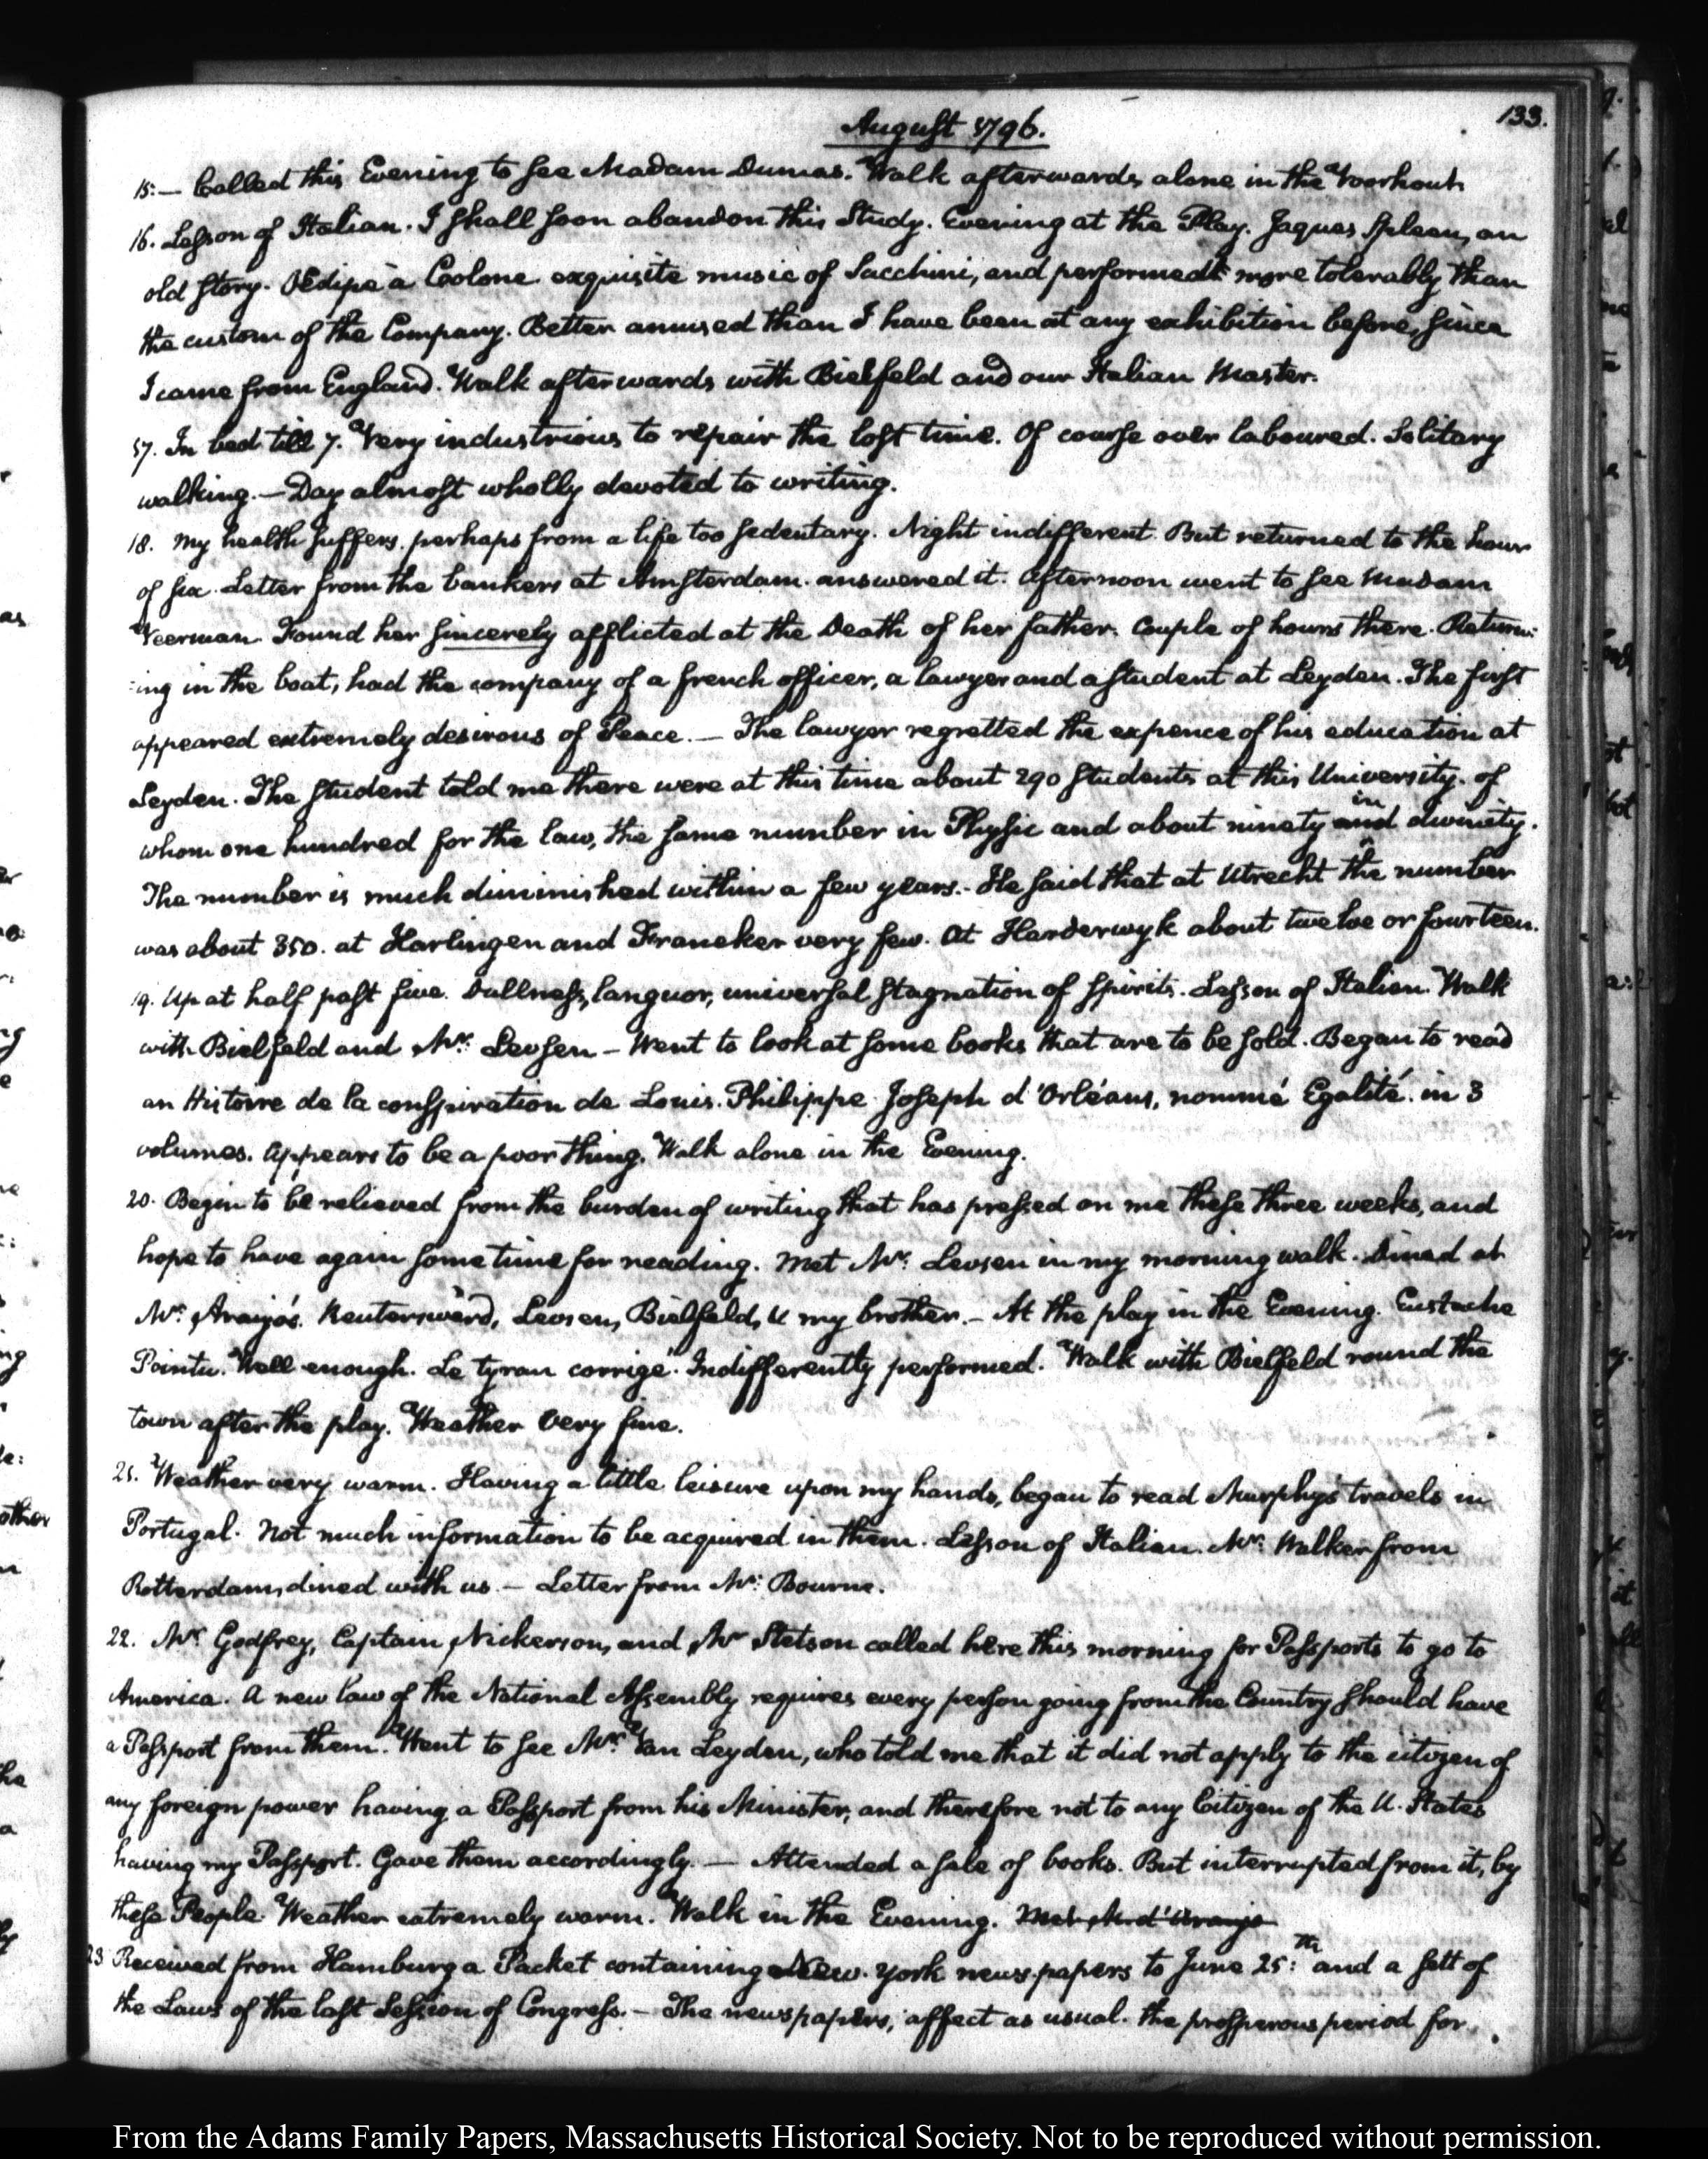 133.
August 1796.
15:— Called this Evening to see Madam Dumas. Walk afterwards alone in the Voorhout.
16. Lesson of Italian. I shall soon abandon this Study. Evening at the Play. Jaques Spleen, an
old story. Œdipe à Colone exquisite music of Sacchini, and performed more tolerably than
the custom of the Company. Better amused than I have been at any exhibition before, since
I came from England. Walk afterwards with Bielfeld and our Italian Master.
17. In bed till 7. Very industrious to repair the lost time. Of course over laboured. Solitary
walking.— Day almost wholly devoted to writing.
18. My health suffers, perhaps from a life too sedentary. Night indifferent. But returned to the hour
of six. Letter from the bankers at Amsterdam. answered it. Afternoon went to see Madam
Veerman. Found her sincerely afflicted at the Death of her father. Couple of hours there. Return:
:ing in the boat, had the company of a french officer, a lawyer and a student at Leyden. The first
appeared extremely desirous of Peace.— The lawyer regretted the expence of his education at
Leyden. The student told me there were at this time about 290 students at this University. of
whom one hundred for the law, the same number in Physic and about ninety and in divinity.
The number is much diminished within a few years.- He said that at Utrecht the number
was about 350. at Harlingen and Franeker very few. At Harderwyk about twelve or fourteen.
19. Up at half past five. Dullness, languor, universal stagnation of spirits. Lesson of Italian. Walk
with Bielfeld and Mr: Levsen – Went to look at some books that are to be sold. Began to read
an Histoire de la conspiration de Louis. Philippe Joseph d'Orléans, nommé Egalité. in 3
volumes. Appears to be a poor thing. Walk alone in the Evening.
20. Begin to be relieved from the burden of writing that has pressed on me these three weeks, and
hope to have again some time for reading. Met Mr: Levsen in my morning walk. Dined at
Mr: Araújo's. Reutersward, Levsen, Bielfeld, & my brother.– At the play in the Evening. Eustache
Pointu. Well enough. Le tyran corrigé. Indifferently performed. Walk with Bielfeld round the
town after the play. Weather very fine.
21. Weather very warm. Having a little leisure upon my hands, began to read Murphy's travels in
Portugal. Not much information to be acquired in them. Lesson of Italian. Mr: Walker from
Rotterdam, dined with us.— Letter from Mr: Bourne.
22. Mr. Godfrey, Captain Nickerson, and Mr Stetson called here this morning for Passports to go to
America. A new law of the National Assembly requires every person going from the Country should have
a Passport from them. Went to see Mr: Van Leyden, who told me that it did not apply to the citizen of
any foreign power having a Passport from his Minister, and therefore not to any Citizen of the U. States
having my Passport. Gave them accordingly.— Attended a sale of books. But interrupted from it, by
these People. Weather extremely warm. Walk in the Evening. Met Mr d'Araujo
23. Received from Hamburg a Packet containing New. York news.papers to June 25:th and a sett of
the Laws of the last Session of Congress.– The newspapers, affect as usual. the prosperous period for
From the Adams Family Papers, Massachusetts Historical Society. Not to be reproduced without permission.